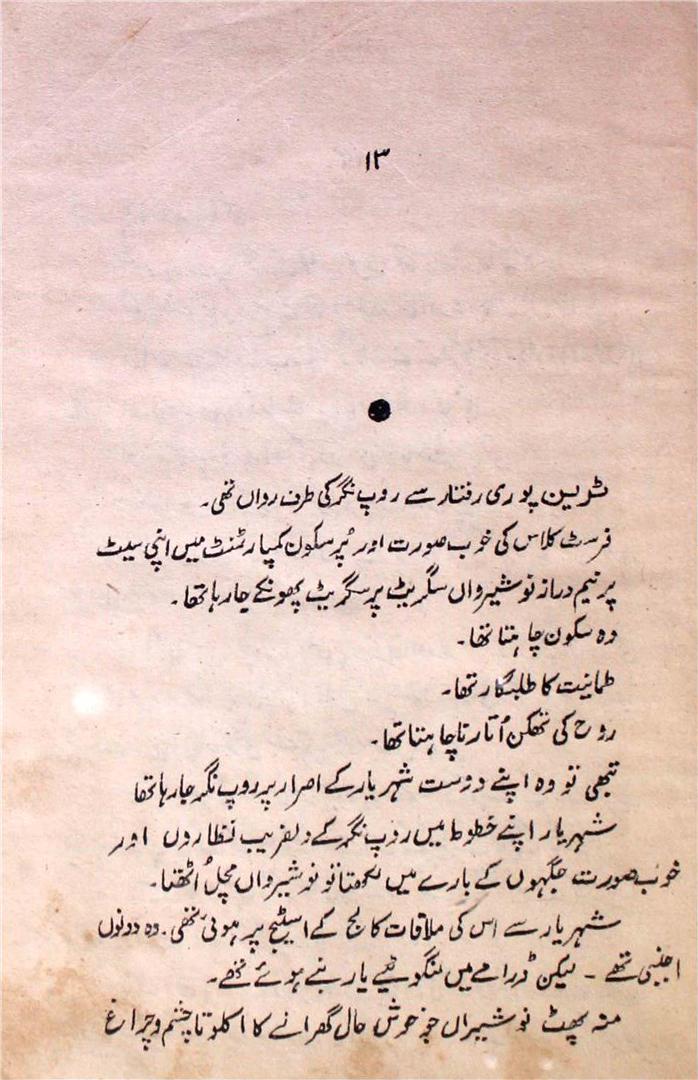 ۱۳
ٹرین پوری رفتار سے روپ نگر کی طرف رواں تھی۔
فرسٹ کلاس کی خوب صورت اور پُر سکون کمپارٹمنٹ میں اپنی سیٹ
پر نیم دراز نوشیرواں سگریٹ پر سگریٹ پھونکے جا رہا تھا۔
وہ سکون چاہتا تھا۔
طمانیت کا طلبگار تھا۔
روح کی تھکن اُتارنا چاہتا تھا۔
تبھی تو وہ اپنے دوست شہریار کے اصرار پر روپ نگر جا رہا تھا
شہریار اپنے خطوط میں روپ نگر کے دلفریب نظاروں اور
خوب صورت جگہوں کے بارے میں لکھتا تو نوشیرواں مچل اُٹھتا۔
شہریار سے اس کی ملاقات کالج کے اسٹیج پر ہوئی تھی۔ وہ دونوں
اجنبی تھے ۔ لیکن ڈرامے میں لنگوٹیے یار بنے ہوئے تھے۔
منہ پھٹ نوشیراں جو خوش حال گھرانے کا اکلوتا چشم و چراغ